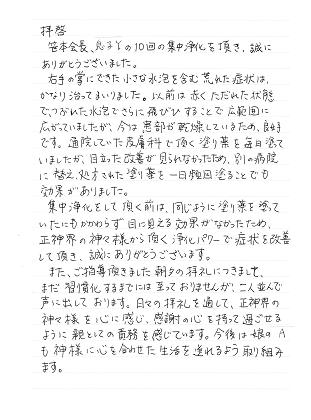 拝啓
笹本会長、娘までの10回の集中浄化を頂き、誠に
ありがとうございました。
右手の掌にできた小さな水泡を含む荒れた症状は、
かなり治ってまいりました。以前は赤くただれた状態
でつぶれた水泡でさらに飛びひすることで広範囲に
広がっていましたが、今は患部が乾燥しているため、良好
です。通院していた皮膚科で頂く塗り薬を毎日塗って
いましたが、目立った改善が見られなかったため、別の病院
に替え、処方された塗り薬を一日数回塗ることでも
効果がありました。
集中浄化をして頂く前は、同じように塗り薬を塗って
いたにもかかわらず目に見える効果がなかったため、
正神界の神々様から頂く浄化パワーで症状を改善
して頂き、誠にありがとうございます。
また、ご指導頂きました朝夕の拝礼につきまして、
まだ習慣化するまでには至っておりませんが、二人並んで
声に出しております。日々の拝礼を通して、正神界の
神々様を心に感じ、感謝の心を持って過ごせる
ように親としての責務を感じています。今後は娘のA
も神様に心を合わせた生活を送れるよう取り組み
ます。